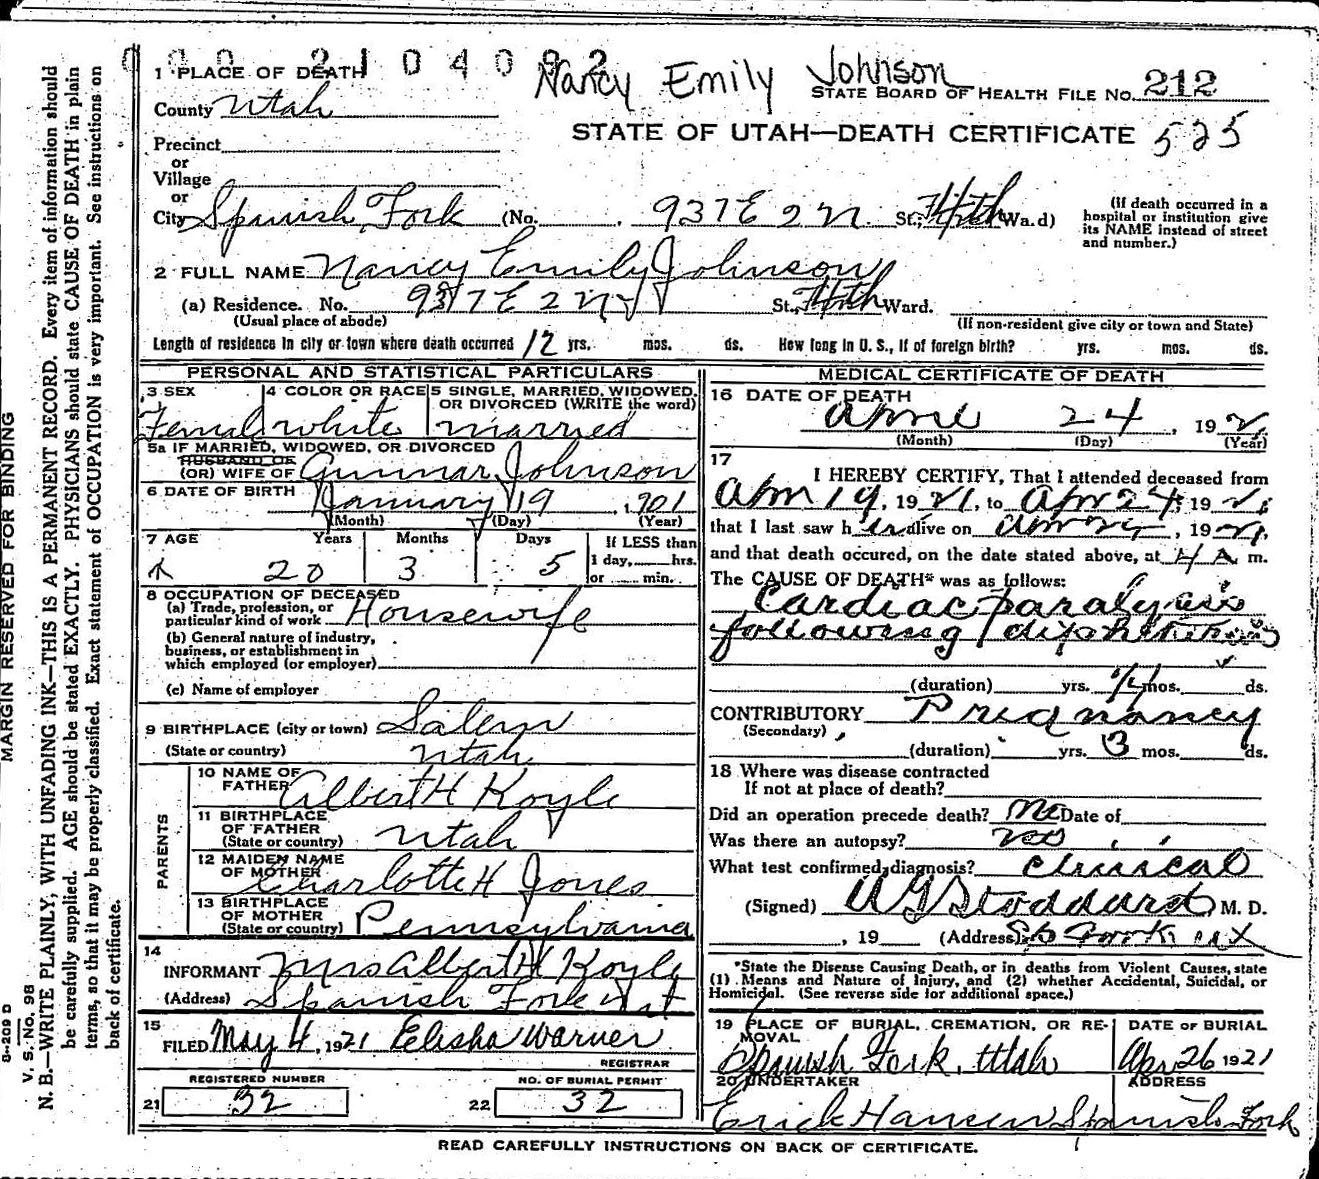 000 2104092
Nancy Emily Johnson
1 PLACE OF DEATH
County Utah
STATE BOARD OF HEALTH FILE No. 212
STATE OF UTAH—DEATH CERTIFICATE 525
Precinct
or
Village
or
City Spanish Fork (No. 937 E 2 N. St.; Ward)
(If death occurred in a hospital or institution give its NAME instead of street and number.)
2 FULL NAME Nancy Emily Johnson
(a) Residence. No. 937 E 2 N St., Ward.
(Usual place of abode) (If non-resident give city or town and State)
Length of residence in city or town where death occurred 12 yrs. mos. ds. How long in U. S., if of foreign birth? yrs. mos. ds.
PERSONAL AND STATISTICAL PARTICULARS
3 SEX
Female
4 COLOR OR RACE
white
5 SINGLE, MARRIED, WIDOWED, OR DIVORCED (WRITE the word)
married
5a IF MARRIED, WIDOWED, OR DIVORCED
HUSBAND OF
(OR) WIFE OF Gunnar Johnson
6 DATE OF BIRTH January 19, 1901
(Month) (Day) (Year)
7 AGE Years Months Days If LESS than
1 day, hrs.
20 3 5 or min.
8 OCCUPATION OF DECEASED
(a) Trade, profession, or
particular kind of work Housewife
(b) General nature of industry,
business, or establishment in
which employed (or employer)
(c) Name of employer
9 BIRTHPLACE (city or town) Salem
(State or country) Utah
PARENTS
10 NAME OF
FATHER Albert H Koyle
11 BIRTHPLACE
OF FATHER
(State or country) Utah
12 MAIDEN NAME
OF MOTHER Charlotte H Jones
13 BIRTHPLACE
OF MOTHER
(State or country) Pennsylvania
14
INFORMANT Mrs Albert H Koyle
(Address) Spanish Fork Ut
15
FILED May 4, 1921 Elisha Warner
REGISTRAR
REGISTERED NUMBER NO. OF BURIAL PERMIT
21 32 22 32
MEDICAL CERTIFICATE OF DEATH
16 DATE OF DEATH
April 24, 192
(Month) (Day) (Year)
17
I HEREBY CERTIFY, That I attended deceased from
Apr 19, 1921, to Apr 24, 1921
that I last saw her alive on Apr 24, 1921,
and that death occured, on the date stated above, at 4 A m.
The CAUSE OF DEATH* was as follows:
Cardiac paralysis
following
(duration) yrs. mos. ds.
CONTRIBUTORY Pregnancy
(Secondary)
(duration) yrs. 3 mos. ds.
18 Where was disease contracted
If not at place of death?
Did an operation precede death? No Date of
Was there an autopsy? no
What test confirmed diagnosis? Clinical
(Signed) Stoddard M. D.
, 19 (Address) Sp Fork Ut
*State the Disease Causing Death, or in deaths from Violent Causes, state
(1) Means and Nature of Injury, and (2) whether Accidental, Suicidal, or
Homicidal. (See reverse side for additional space.)
19 PLACE OF BURIAL, CREMATION, OR REMOVAL
Spanish Fork, Utah
DATE OF BURIAL
Apr 26 1921
20 UNDERTAKER ADDRESS
Erick Hansen Spanish Fork
READ CAREFULLY INSTRUCTIONS ON BACK OF CERTIFICATE.
MARGIN RESERVED FOR BINDING
N. B.—WRITE PLAINLY, WITH UNFADING INK—THIS IS A PERMANENT RECORD. Every item of information should
be carefully supplied. AGE should be stated EXACTLY. PHYSICIANS should state CAUSE OF DEATH in plain
terms, so that it may be properly classified. Exact statement of OCCUPATION is very important. See instructions on
back of certificate.
V. S. No. 98
8-209 D